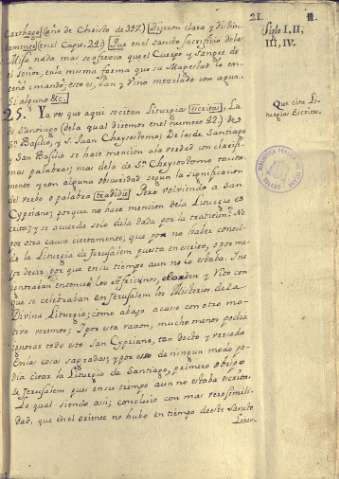 21.
Cartago (año de Christo de 397.) Dixeron clara y distin-
en el Cap. 24.) Que en el santo sacrificio de la
Missa nada mas se ofrezca que el Cuerpo y Sangre de
el Señor, en la misma forma que su Magestad lo en-
seño: esto es, Pan y Vino mezclado con agua.
Siglo I, II,
III, IV.
25. Ya por que aqui se citan Liturgia escritas, La
de Santiago (de la qual diremos en el numero 22.) de
Sn. Basilio, y S. Juan Chrysostomo; De las de Santiago
y San Basilio se hace mencion a la verdad con clarissi-
mas palabras; mas de la de Sn. Chrysostomo tacita-
mente y con alguna obscuridad segun la significacion
del verbo o palabra tradidit. Pero volviendo a San
Cypriano, porque no hace mencion de la Liturgia es-
crita; y se acuerda solo de la dada por la tradicion? No
por otra causa ciertamente, que por no haber conoci-
do la Liturgia de Jerusalem puesta en escrito, o por me-
jor decir, por que en su tiempo aun no lo estaba.
entonces los Africanos, el orden y Rito con
que se celebraban en Jerusalem los Misterios de la
Divina Liturgia; como abajo acaso con otro mo-
tivo veremos; Y por esta razon, mucho menos podia
ignorar todo esto San Cypriano, tan docto y versado
en las cosas sagradas; y por esso de ningun modo po-
dia citar la Liturgia de Santiago, primero obispo
de Jerusalem que en su tiempo aun no estaba escrita.
Lo qual siendo assi; concluio con mas verosimili-
dad, que en el oriente no hubo en tiempo de este Santo
Que cita Li-
turgias Escritas.